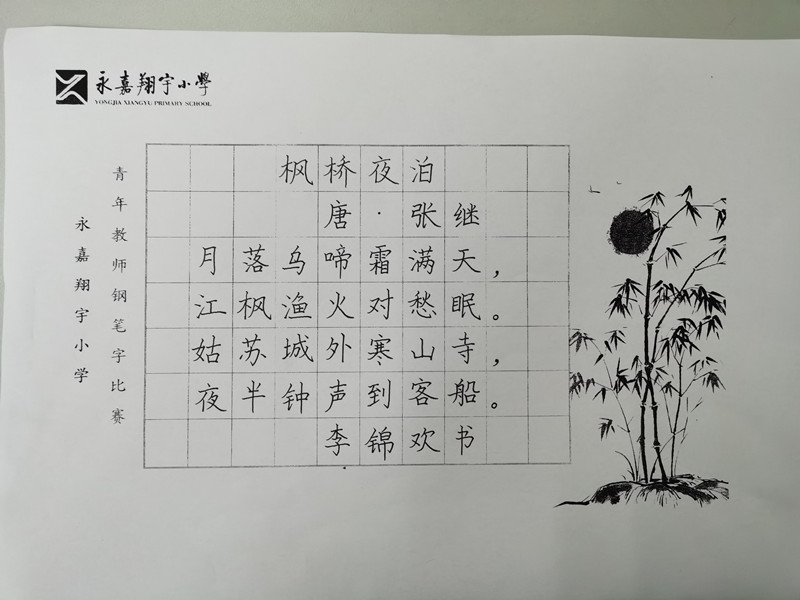 永嘉翔宇小學
YONGJIA XIANGYU PRIMARY SCHOOL
永嘉翔宇小学
青年教师钢笔字比赛
枫桥夜泊
唐·张继
月落乌啼霜满天，
江枫渔火对愁眠。
姑苏城外寒山寺，
夜半钟声到客船。
李锦欢书